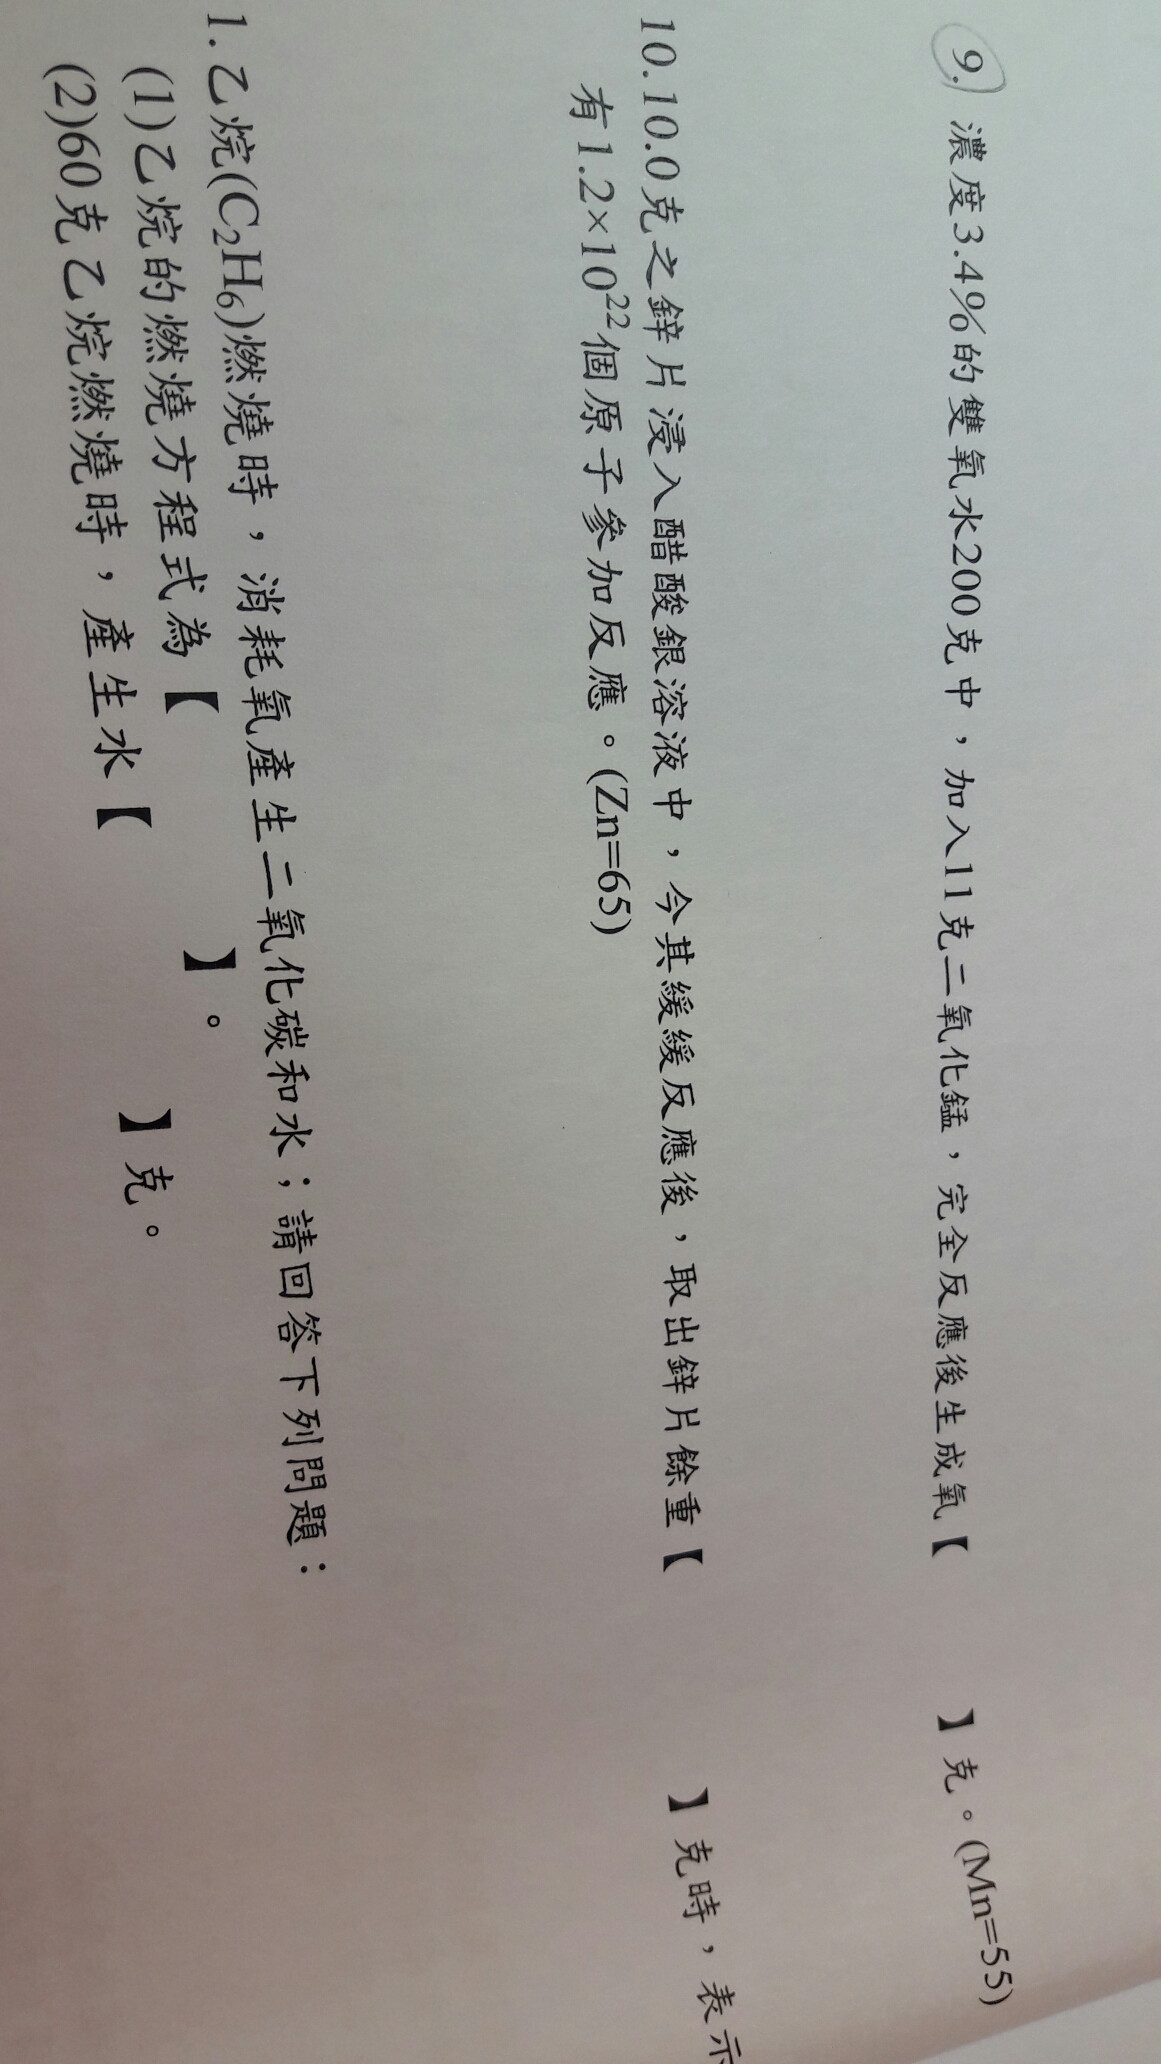 9. 濃度3.4%的雙氧水200克中，加入11克二氧化錳，完全反應後生成氧【　　】克。(Mn=55)
10.10.0克之鋅片浸入醋酸銀溶液中，今其緩緩反應後，取出鋅片餘重【　　】克時，表示
有1.2×10²²個原子參加反應。(Zn=65)
1.乙烷(C₂H₆)燃燒時，消耗氧產生二氧化碳和水；請回答下列問題：
(1)乙烷的燃燒方程式為【　　】。
(2)60克乙烷燃燒時，產生水【　　】克。